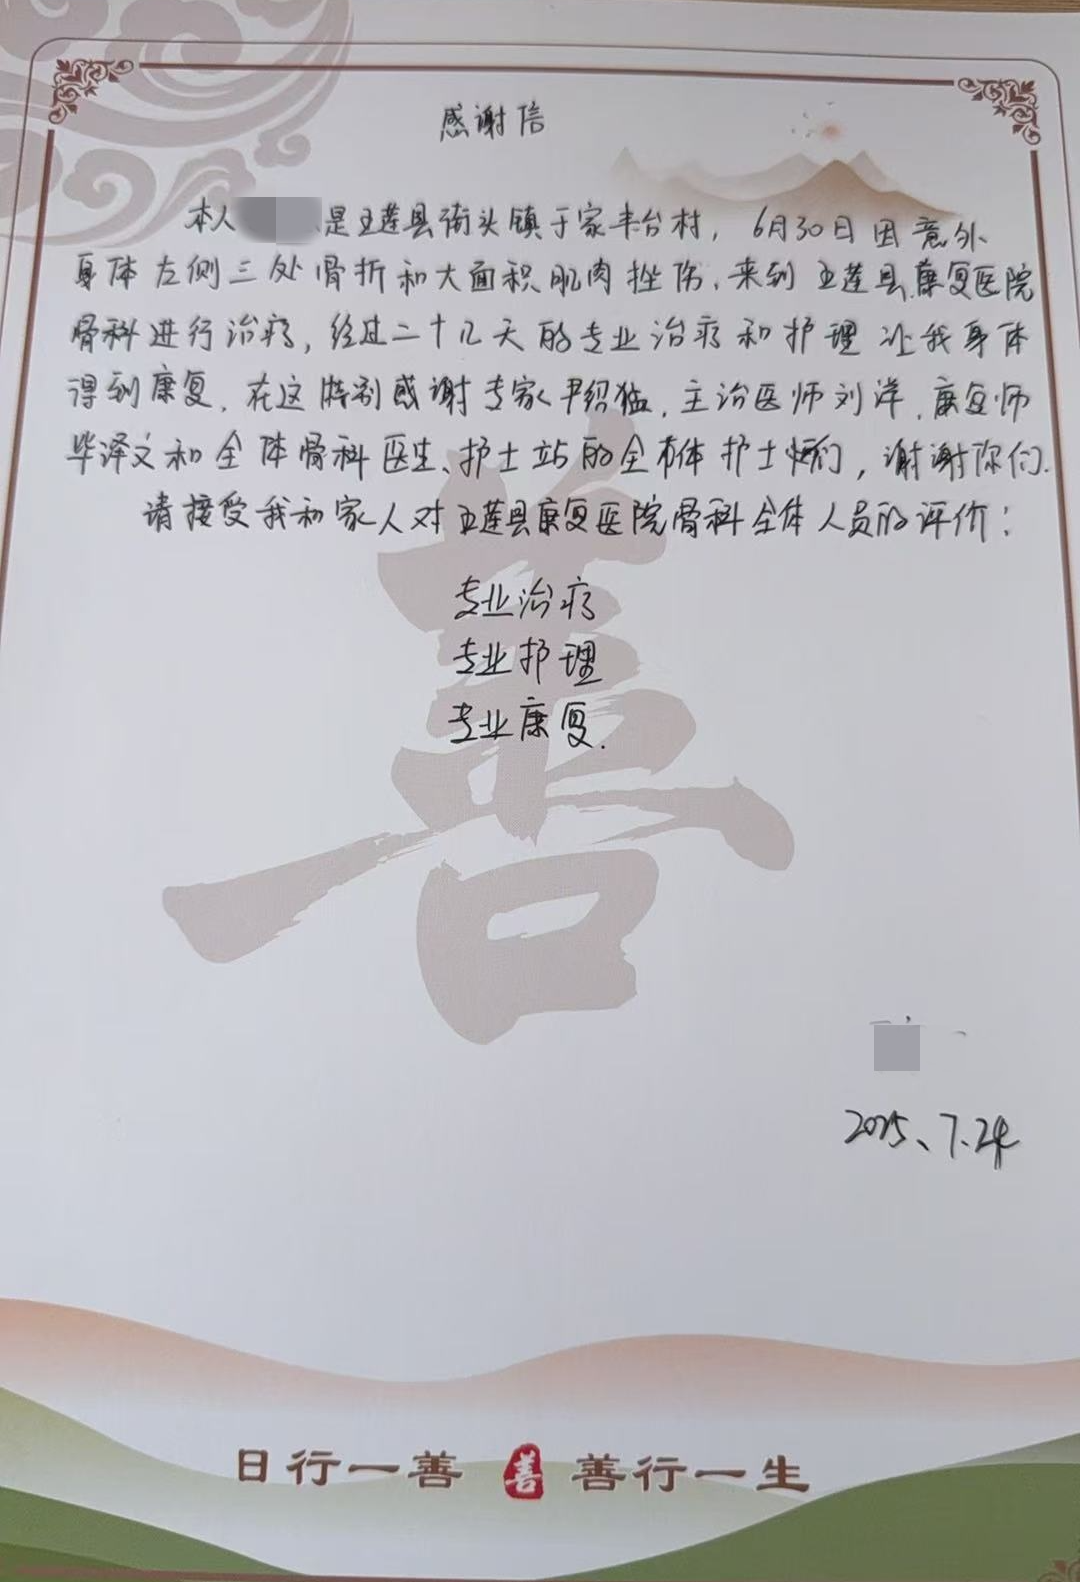 感谢信
本人是五莲县街头镇于家丰台村，6月30日因意外
身体左侧三处骨折和大面积肌肉挫伤，来到五莲县康复医院
骨科进行治疗，经过二十几天的专业治疗和护理让我身体
得到康复，在这特别感谢专家尹绍猛，主治医师刘洋，康复师
毕泽文和全体骨科医生、护士站的全体护士们，谢谢你们.
请接受我和家人对五莲县康复医院骨科全体人员的评价：
专业治疗
专业护理
专业康复.
善
2025、7.24
日行一善 善 善行一生